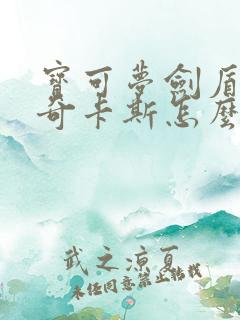 寶可夢劍盾
奇卡斯怎麼
武之涼夏
未经同意禁止转载